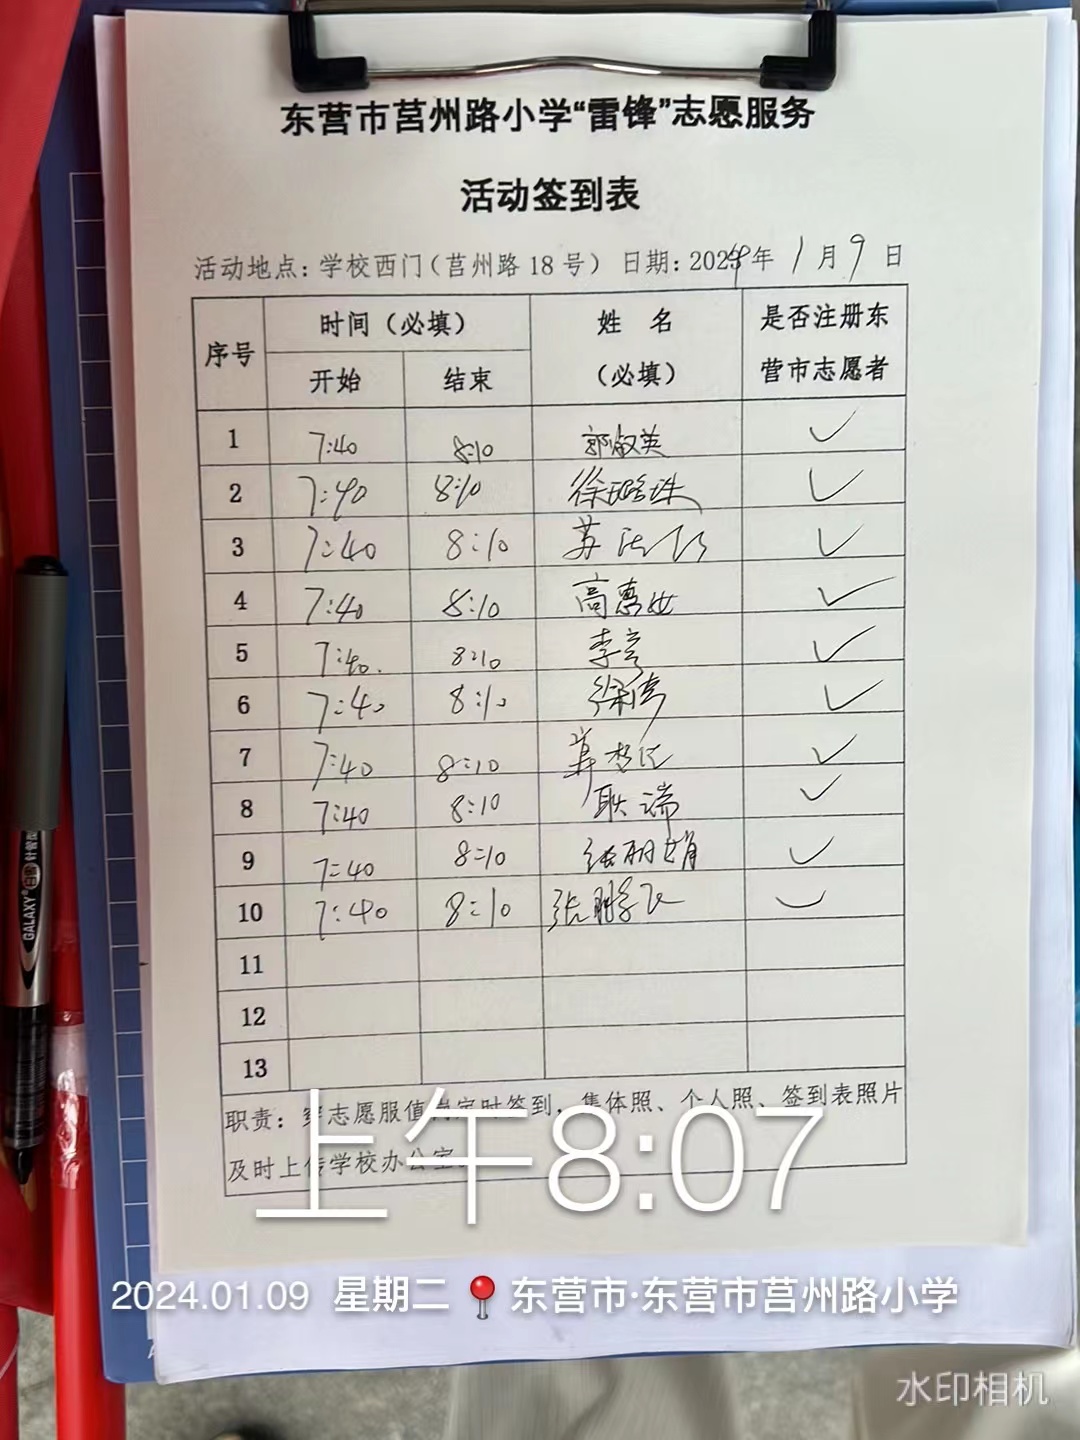 东营市莒州路小学“雷锋”志愿服务
活动签到表
活动地点：学校西门（莒州路18号） 日期：2024年 1月9日
序号 时间（必填） 姓 名（必填） 是否注册东营市志愿者
开始 结束
1 7:40 8:10 郭淑英 ✓
2 7:40 8:10 徐璐珠 ✓
3 7:40 8:10 苏 ✓
4 7:40 8:10 高惠女 ✓
5 7:40 8:10 李 ✓
6 7:40 8:10 徐倩 ✓
7 7:40 8:10 ✓
8 7:40 8:10 耿端 ✓
9 7:40 8:10 张丽娟 ✓
10 7:40 8:10 张鹏飞 ✓
11
12
13
职责：穿志愿服值岗定时签到，集体照、个人照、签到表照片
及时上传学校办公室。
上午8:07
2024.01.09 星期二 东营市·东营市莒州路小学
水印相机
GALAXY